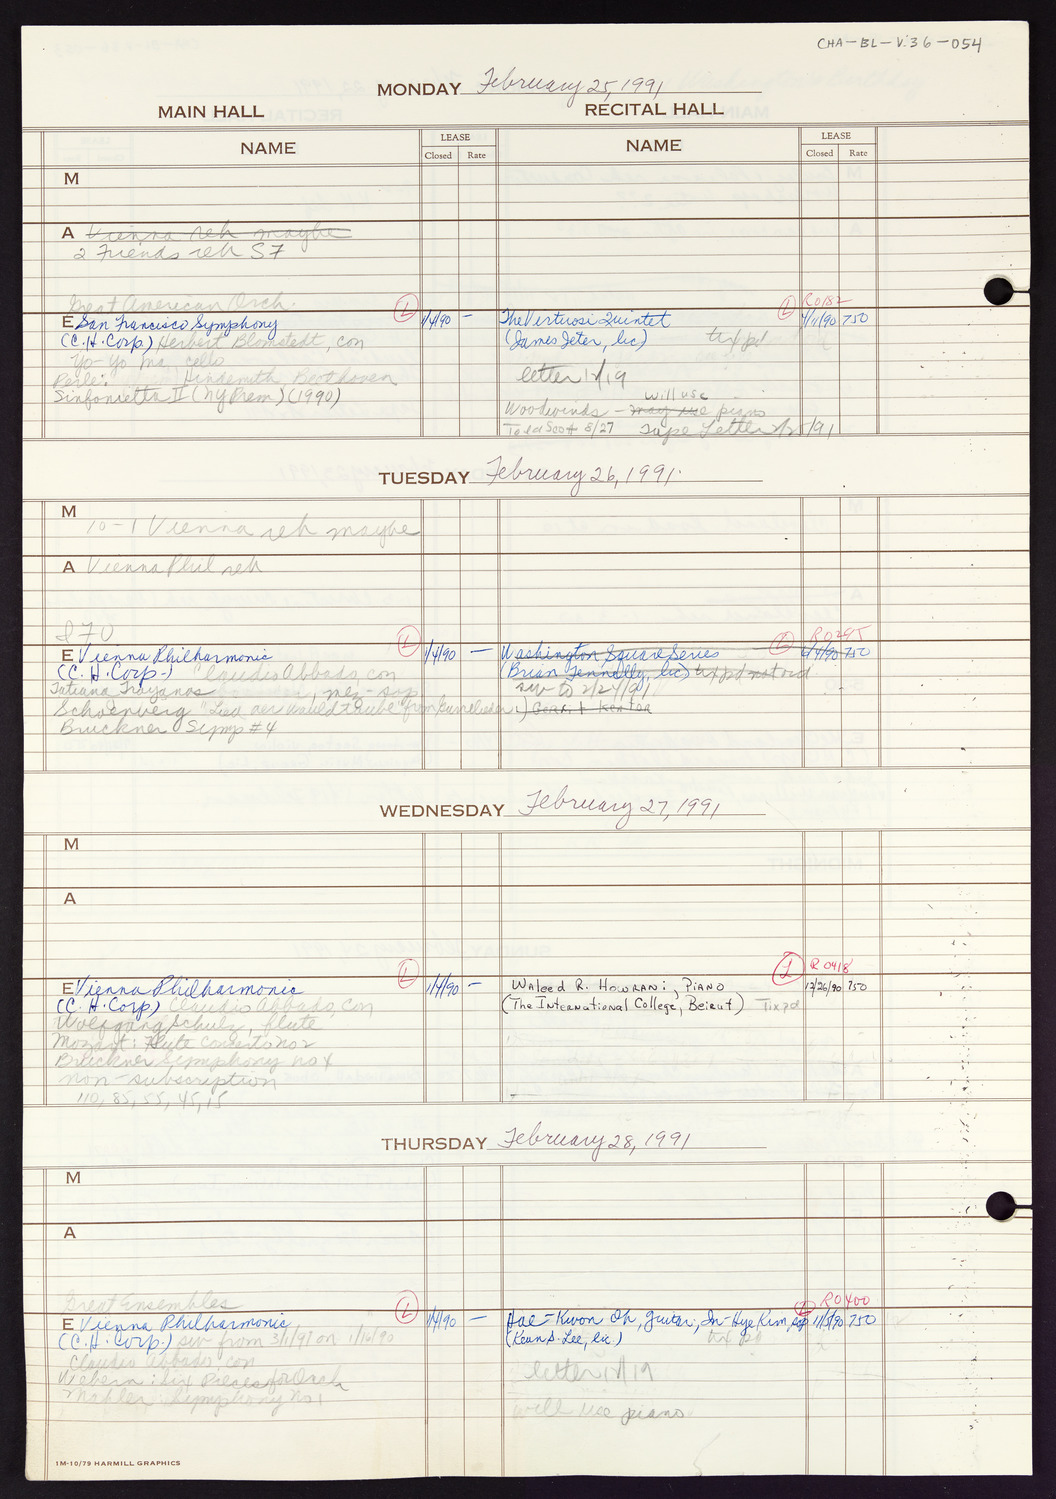 CHA-BL-V.36-054
MONDAY February 25, 1991
MAIN HALL
RECITAL HALL
NAME
LEASE
Closed Rate
NAME
LEASE
Closed Rate
M
A Vienna reh maybe
2 Friends reh SF
Great American Orch.
E San Francisco Symphony
(C.H. Corp) Herbert Blomstedt, con
Yo-Yo Ma, cello
Perle: Hindemith, Beethoven
Sinfonietta II (NY Prem) (1990)
L
1/4/90 —
The Virtuosi Quintet
(James Jeter, lic) tix pd
letter 12/19
will use
Woodwinds - may use piano
Told Scott 8/27 supe Letter 2/5/91
L R0182
4/11/90 750
TUESDAY February 26, 1991.
M 10-1 Vienna reh maybe
A Vienna Phil reh
I 7 U
E Vienna Philharmonic
(C.H. Corp.) Claudio Abbado, con
Tatiana Troyanos, mez-sop
Schoenberg "Lied der Waldtaube" from Gurrelieder
Bruckner Symp #4
L
1/4/90 —
Washington Square Series
(Brian Fennelly, lic) tix pd
sw to 2/24/91
L R0295
750
WEDNESDAY February 27, 1991
M
A
E Vienna Philharmonic
(C.H. Corp) Claudio Abbado, con
Wolfgang Schulz, flute
Mozart: Flute Concerto no 2
Bruckner Symphony no 4
non-subscription
110, 85, 55, 45, 15
L
1/4/90 —
Waleed R. Howrani, Piano
(The International College, Beirut) Tix pd
L R0418
12/26/90 750
THURSDAY February 28, 1991
M
A
Great Ensembles
E Vienna Philharmonic
(C.H. Corp.) sw from 3/1/91 on 1/16/90
Claudio Abbado, con
Webern: Six Pieces for Orch
Mahler: Symphony no 1
L
1/4/90 —
Hae-Kwon Oh, guitar; In-Hye Kim, sop
(Kean S. Lee, lic.) tix pd
letter 12/19
will use piano
L R0400
11/5/90 750
1M-10/79 HARMILL GRAPHICS